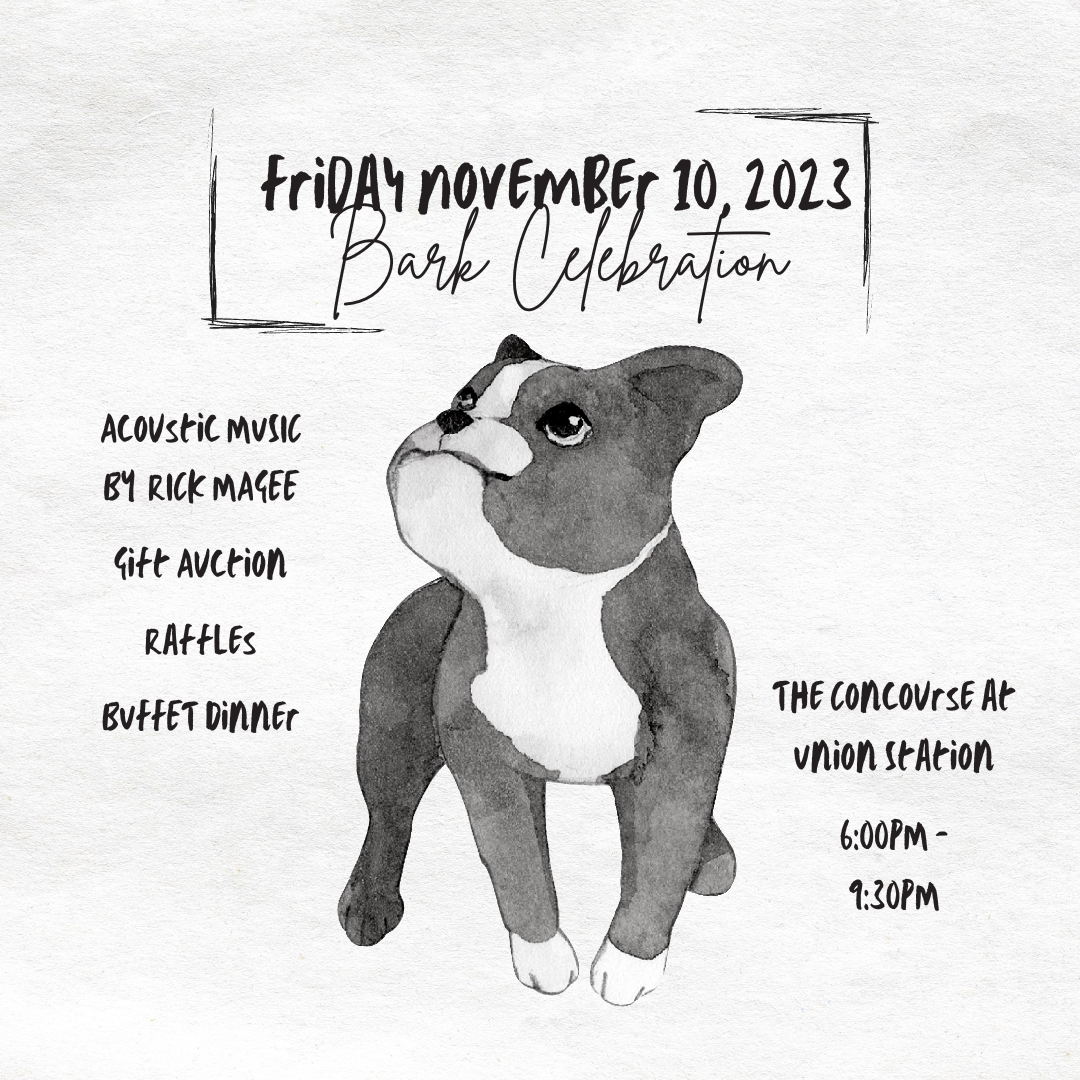 FriDAY NOVEmBEr 10, 2023
Bark Celebration
ACOUStiC MUSIC
BY RICK MAGEE
Gift AUCtiON
RAffLES
BUffET DiNNEr
THE CONCOUrSE At
UNiON StAtiON
6:00PM -
9:30PM